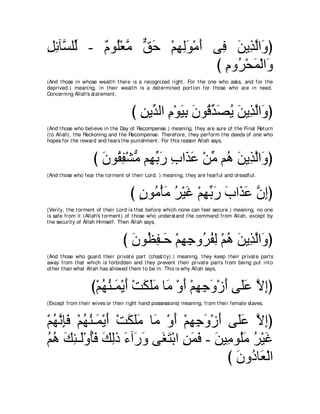 (وَالَّذِينَ فِى أَمْوَلِهِمْ حَقٌّ مَّعْلُومٌ - لِّلسَّآئِلِ
وَالْمَحْرُومِ )
(And those in whose wealth there is a recognized right. For the one who asks, and for the
deprived.) meaning, in their wealth is a determined portion for those who are in need.
Concerning Allah's statement,
(وَالَّذِينَ يُصَدِّقُونَ بِيَوْمِ الدِّينِ )
(And those who believe in the Day of Recompense.) meaning, they are sure of the Final Return
(to Allah), the Reckoning and the Recompense. Therefore, they perform the deeds of one who
hopes for the reward and fears the punishment. For this reason Allah says,
(وَالَّذِينَ هُم مِّنْ عَذَابِ رَبِّهِم مُّشْفِقُونَ )
(And those who fear the torment of their Lord. ) meaning, they are fearful and dreadful.
(إِنَّ عَذَابَ رَبِّهِمْ غَيْرُ مَأْمُونٍ )
(Verily, the torment of their Lord is that before which none can feel secure.) meaning, no one
is safe from it (Allah's torment) of those who understand the command from Allah, except by
the security of Allah Himself. Then Allah says,
(وَالَّذِينَ هُمْ لِفُرُوجِهِمْ حَـفِظُونَ )
(And those who guard their private part (chastity).) meaning, they keep their private parts
away from that which is forbidden and they prevent their private parts from being put into
other than what Allah has allowed them to be in. This is why Allah says,
(إِلاَّ عَلَى أَزْوَجِهِمْ أَوْ مَا مَلَكَتْ أَيْمَـنُهُمْ)
(Except from their wives or their right hand possessions) meaning, from their female slaves.
إِلاَّ عَلَى أَزْوَجِهِمْ أَوْ مَا مَلَكَتْ أَيْمَـنُهُمْ فَإِنَّهُمْ
غَيْرُ مَلُومِينَ - فَمَنِ ابْتَغَى وَرَآءَ ذَلِكَ فَأُوْلَـئِكَ هُمُ
الْعَادُونَ )